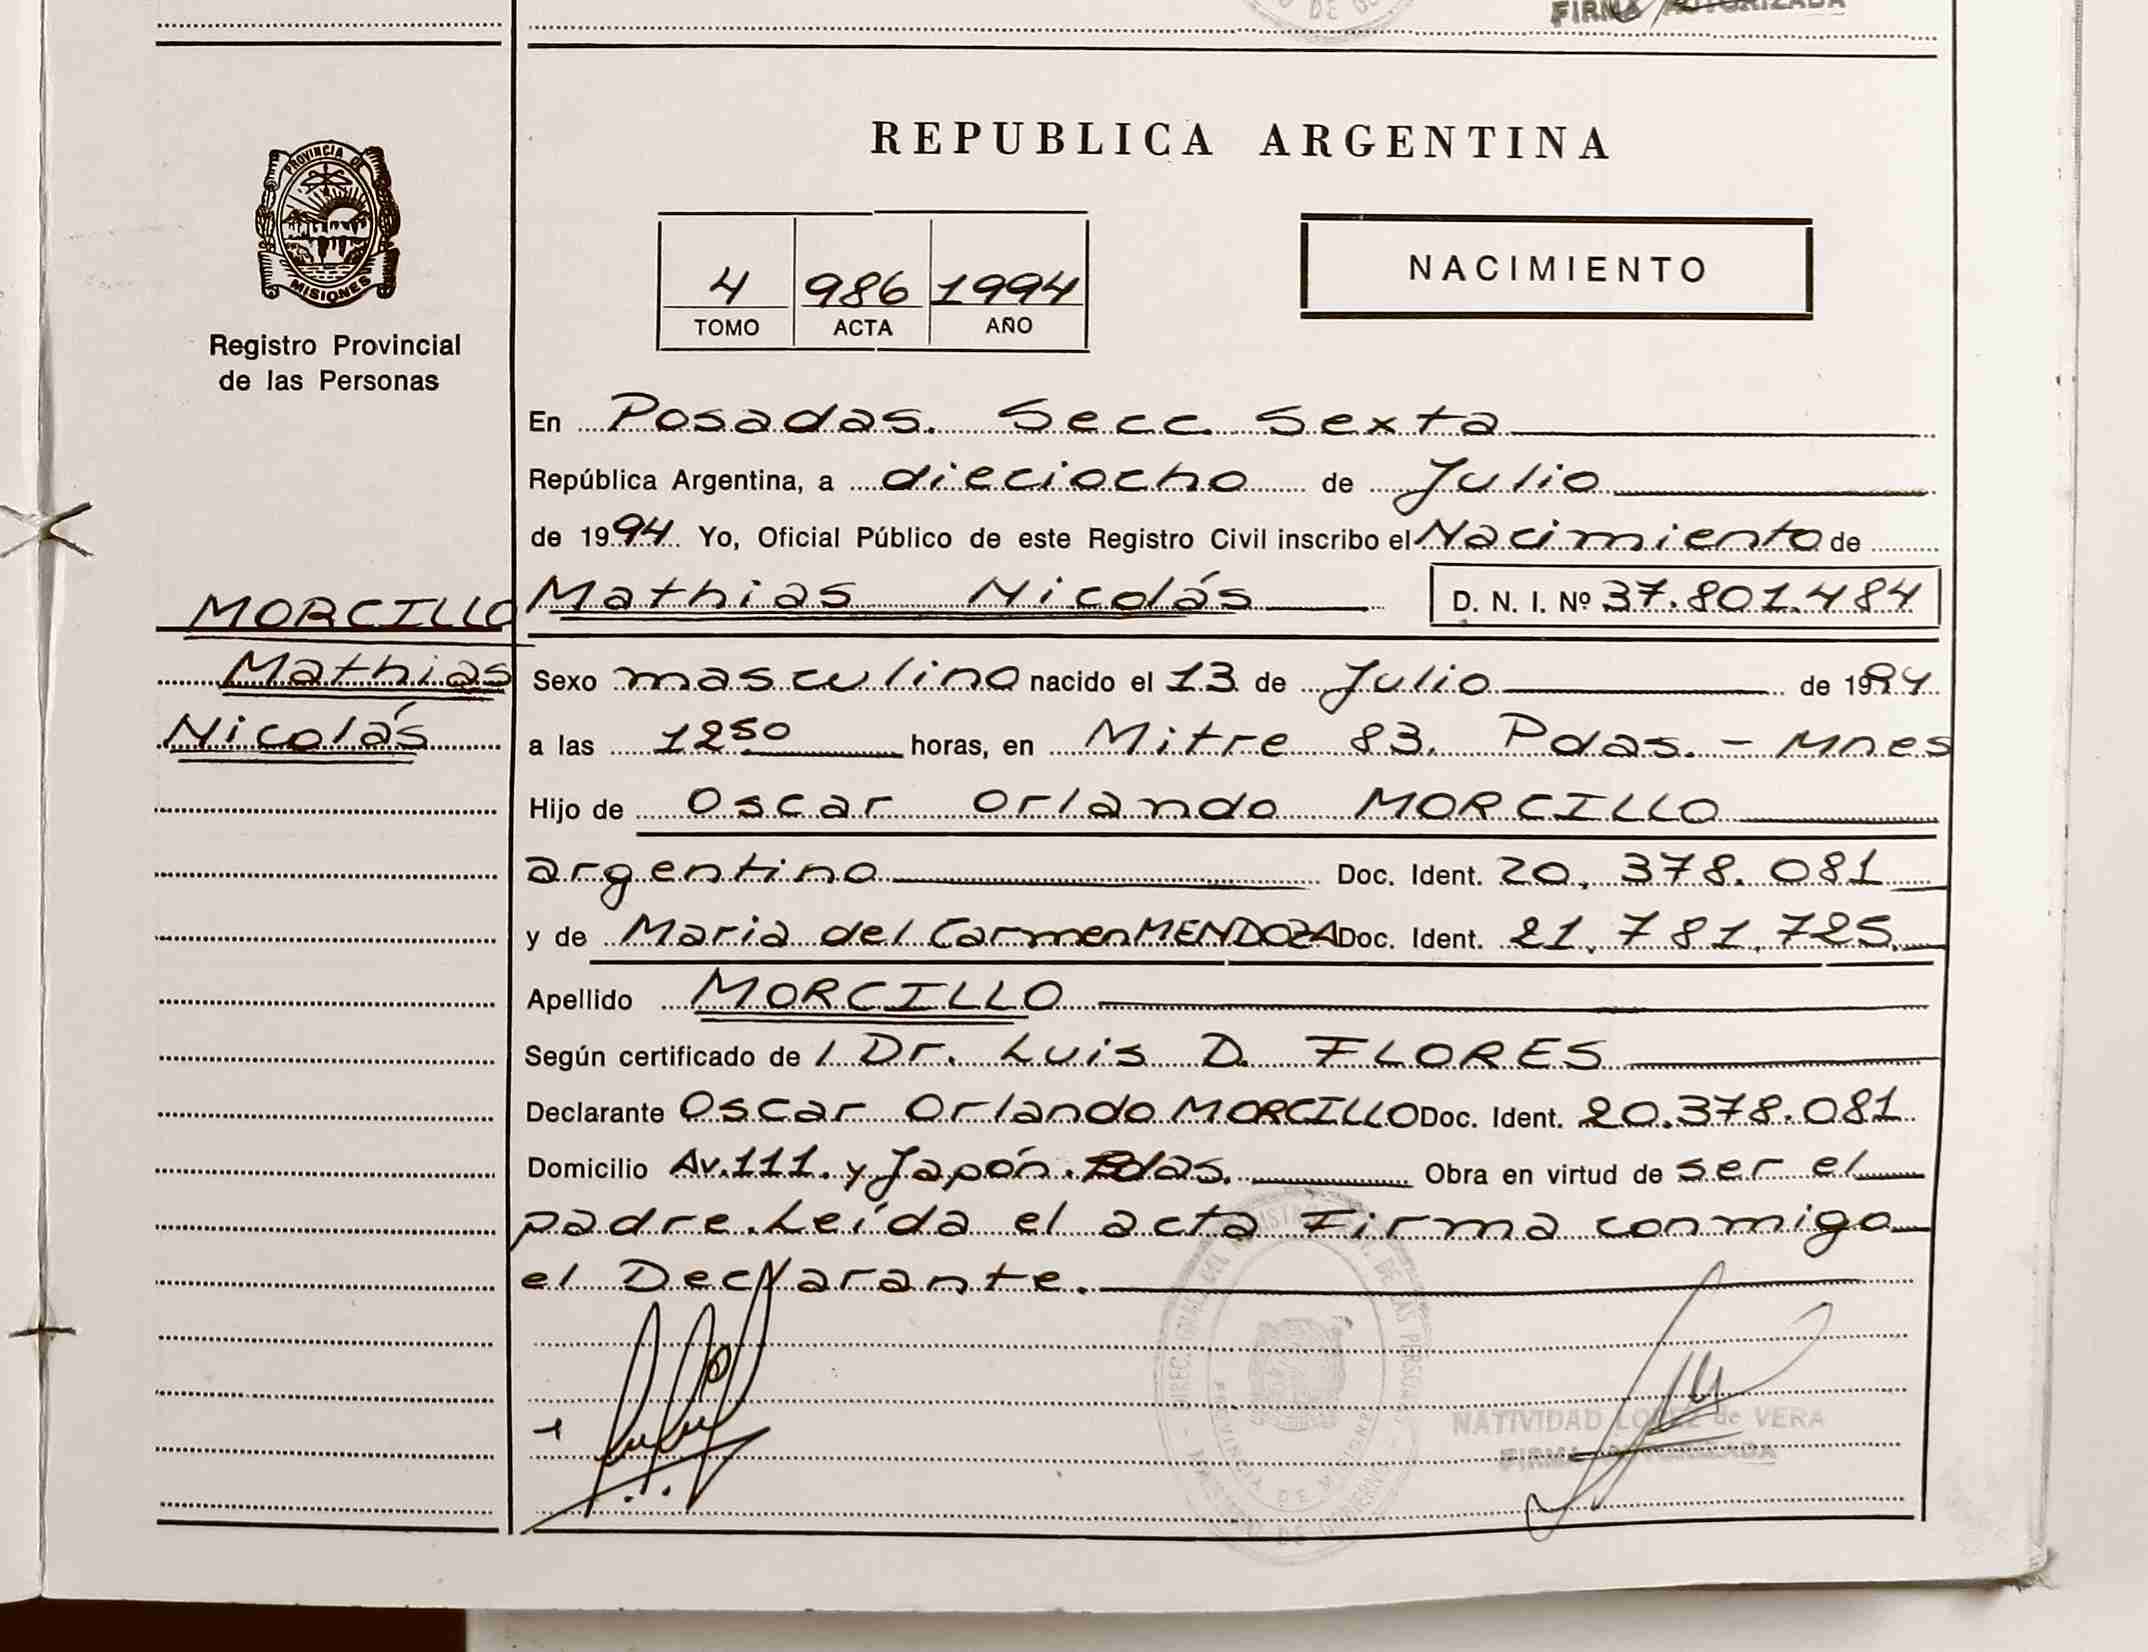 FIRMA AUTORIZADA
REPUBLICA ARGENTINA
PROVINCIA DE
MISIONES
Registro Provincial
de las Personas
4 986 1994
TOMO ACTA AÑO
NACIMIENTO
En Posadas. Secc. Sexta
República Argentina, a dieciocho de Julio
de 1994. Yo, Oficial Público de este Registro Civil inscribo el Nacimiento de
MORCILLO
Mathias
Nicolás
Mathias Nicolás D. N. I. Nº 37.801.484
Sexo masculino nacido el 13 de Julio de 1994
a las 12 50 horas, en Mitre 83. Pdas. - Mnes
Hijo de Oscar Orlando MORCILLO
argentino Doc. Ident. 20.378.081
y de Maria del Carmen MENDOZA Doc. Ident. 21.781.725.
Apellido MORCILLO
Según certificado de / Dr. Luis D. FLORES
Declarante Oscar Orlando MORCILLO Doc. Ident. 20.378.081
Domicilio Av. 111. y Japón. Pdas. Obra en virtud de ser el
padre. Leída el acta Firma conmigo
el Declarante.
NATIVIDAD LOPEZ de VERA
FIRMA AUTORIZADA